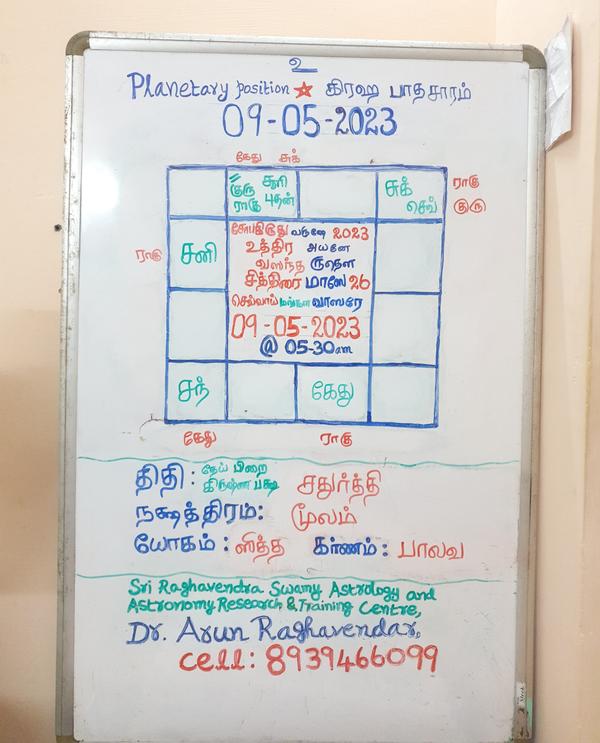 உ
Planetary position கிரஹ பாதசாரம்
09-05-2023
கேது சுக்
குரு சூரி
ராகு புதன்
சுக்
செவ்
ராகு
குரு
ராகு
சனி
சோபகிருது வருஷே 2023
உத்திர அயனே
வஸந்த ருதௌ
சித்திரை மாஸே 26
செவ்வாய் மங்கள வாஸரே
09-05-2023
@ 05-30am
சந்
கேது
கேது
ராகு
திதி : தேய் பிறை
கிருஷ்ண பக்ஷ சதுர்த்தி
நக்ஷத்திரம்: மூலம்
யோகம் : ஸித்த கர்ணம் : பாலவ
Sri Raghavendra Swamy Astrology and
Astronomy Research & Training Centre,
Dr. Arun Raghavendar,
cell: 8939466099